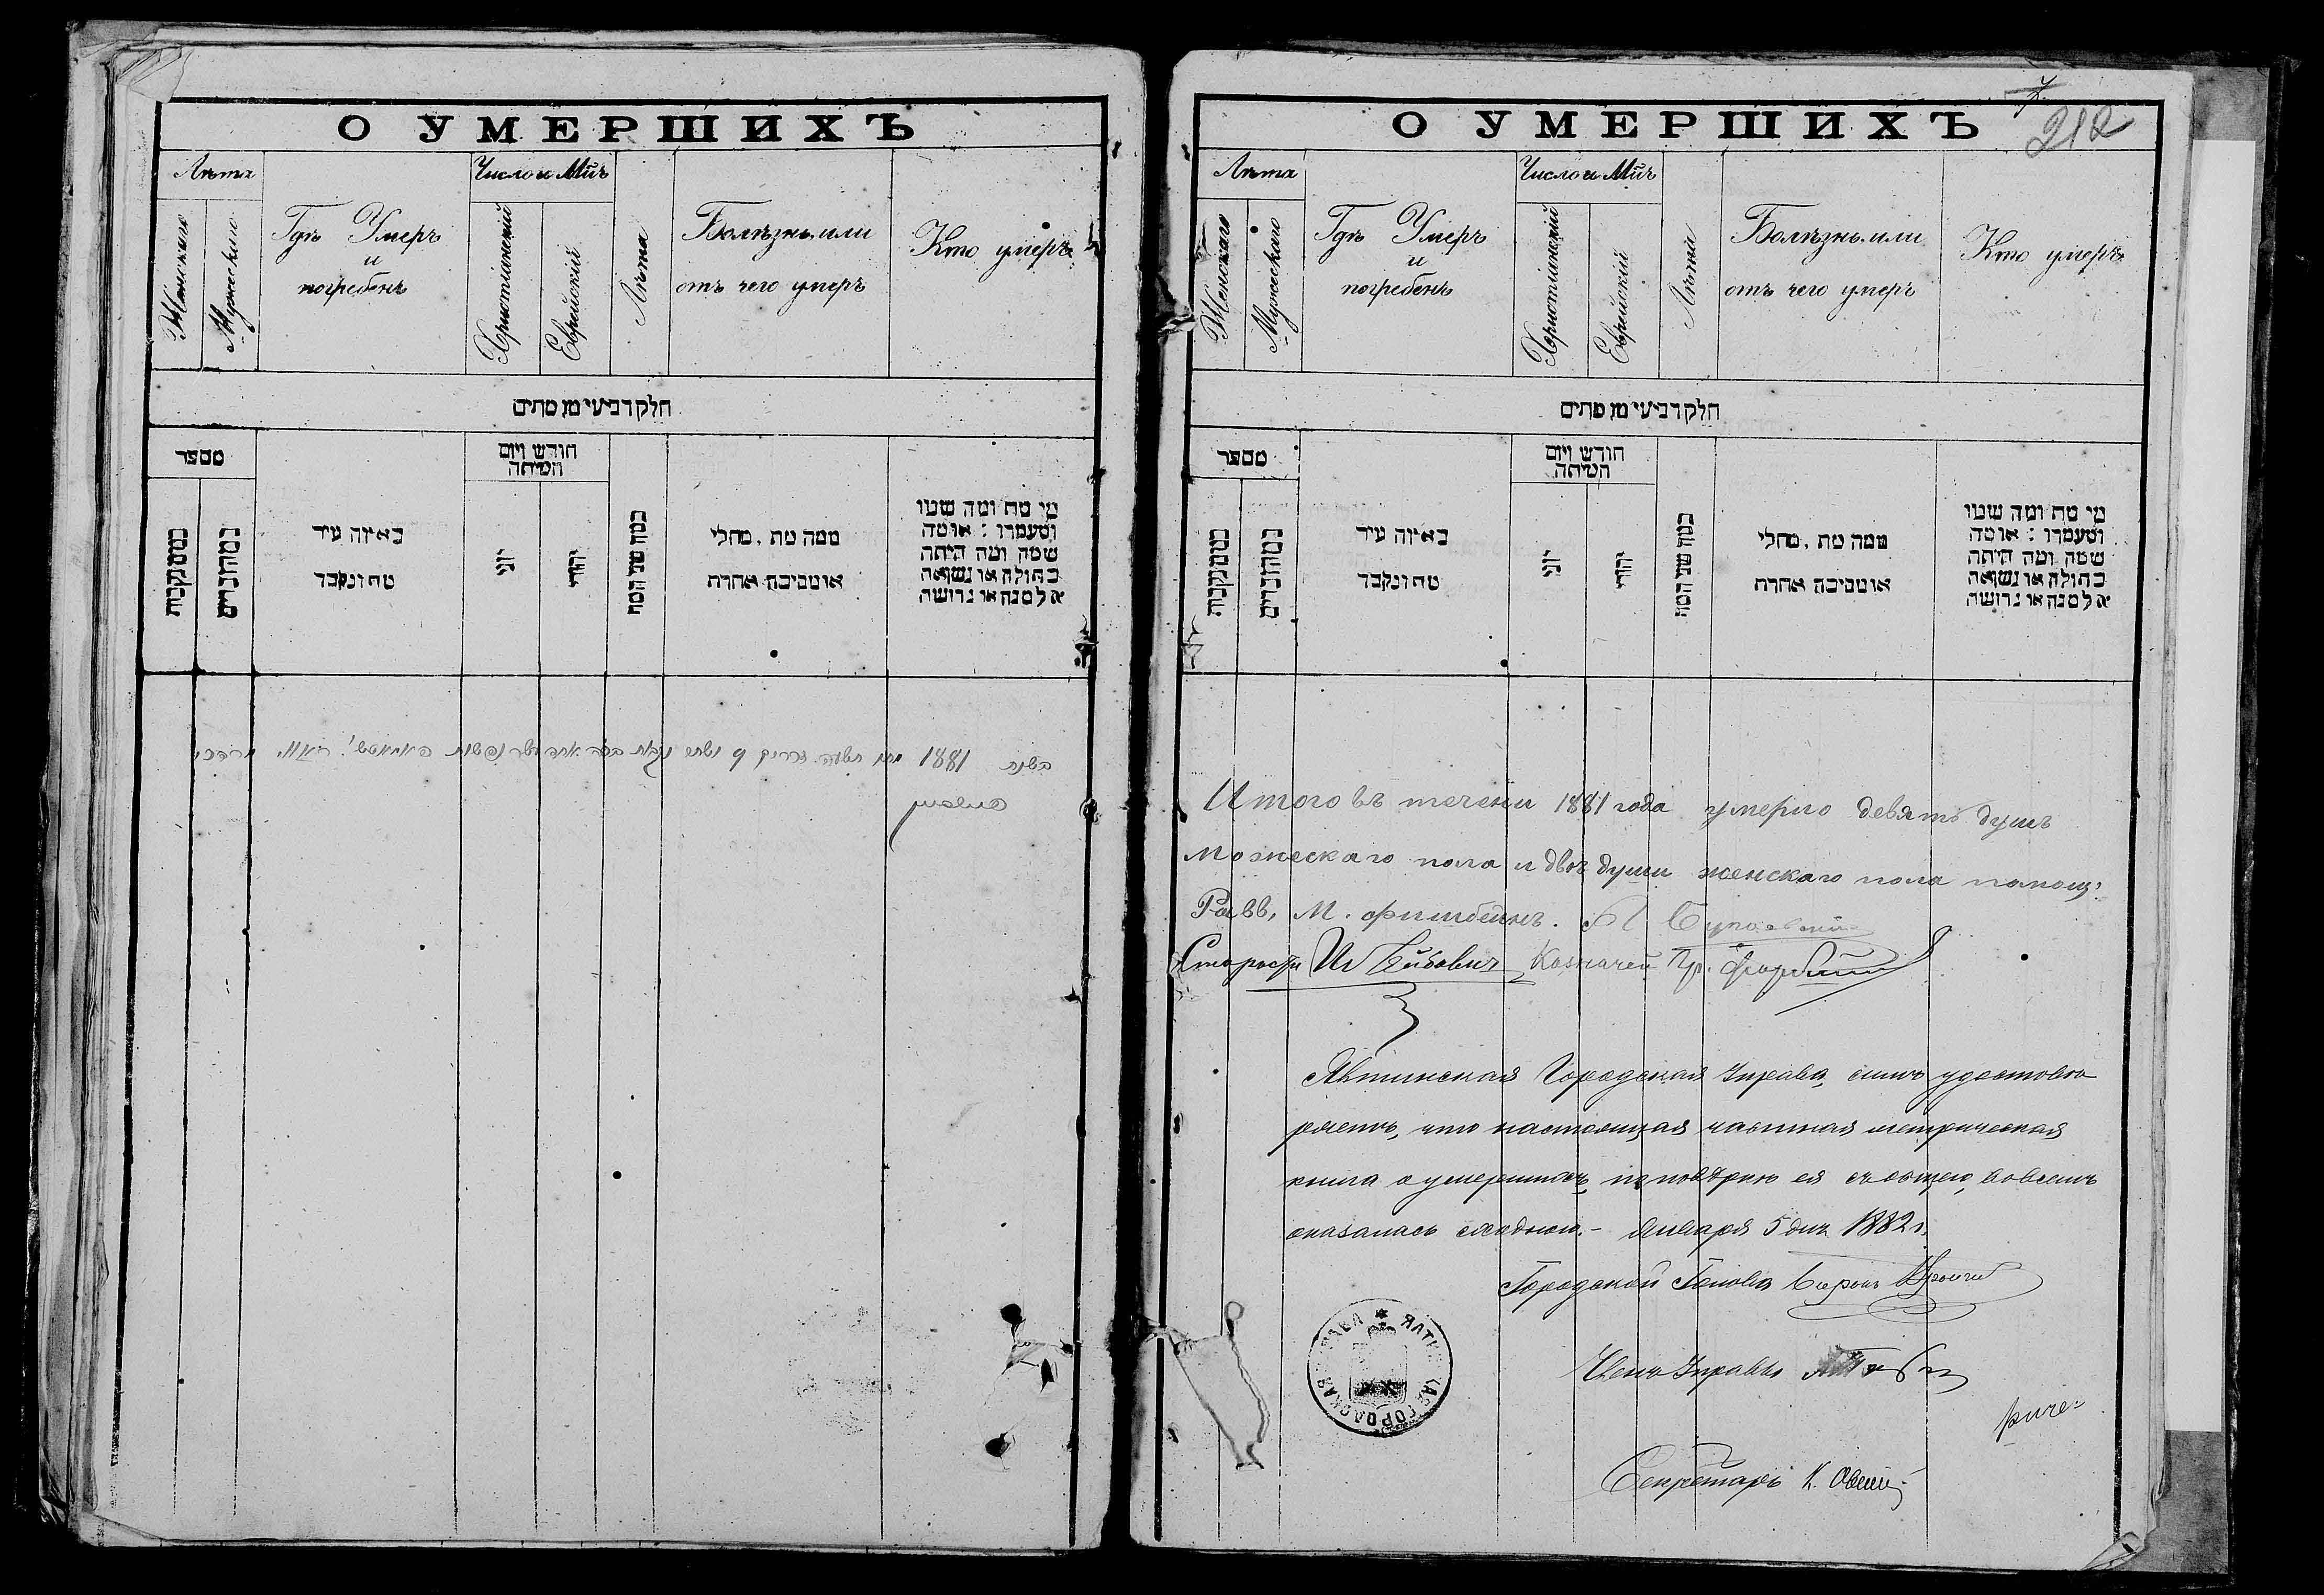 О УМЕРШИХЪ
Лѣта
Женскаго
Мужескаго
Гдѣ Умеръ
и
погребенъ
Число и Мцъ
Христіанскій
Еврейскій
Лѣта
Болѣзнь или
отъ чего умеръ
Кто умеръ
חלק רביעי מן מתים
מספר
במספר נקבות
במספר זכרים
באיזה עיר
מת ונקבר
חודש ויום
המיתה
יוני
יהודי
כמה שני המת
ממה מת, מחלי
או מסיבה אחרת
מי מת ומה שמו
ומעמדו : או מה
שמה ומה היתה
בתולה או נשואה
אלמנה או גרושה
בשנת 1881
О УМЕРШИХЪ
7
212
Лѣта
Женскаго
Мужескаго
Гдѣ Умеръ
и
погребенъ
Число и Мцъ
Христіанскій
Еврейскій
Лѣта
Болѣзнь или
отъ чего умеръ
Кто умеръ
חלק רביעי מן מתים
מספר
במספר נקבות
במספר זכרים
באיזה עיר
מת ונקבר
חודש ויום
המיתה
יוני
יהודי
כמה שני המת
ממה מת, מחלי
או מסיבה אחרת
מי מת ומה שמו
ומעמדו : או מה
שמה ומה היתה
בתולה או נשואה
אלמנה או גרושה
Итого въ течени 1881 года умерло девять душъ
можескаго пола и двѣ души женскаго пола помощ:
Равв, М. Фишбейнъ.
Староста И Лейбовичъ Казначей Гр.
Ялтинская Городская Управа, симъ удостовѣ
ряетъ, что настоящая частная метрическая
книга о умершихъ, по повѣркѣ ея съ общею, вовсемъ
оказалась сходною. – Января 5 дня 1882 г.
Городской Голова Баронъ Врангель
Членъ Управы
Секретарь К.
ЯЛТИНСКАЯ ГОРОДСКАЯ УПРАВА